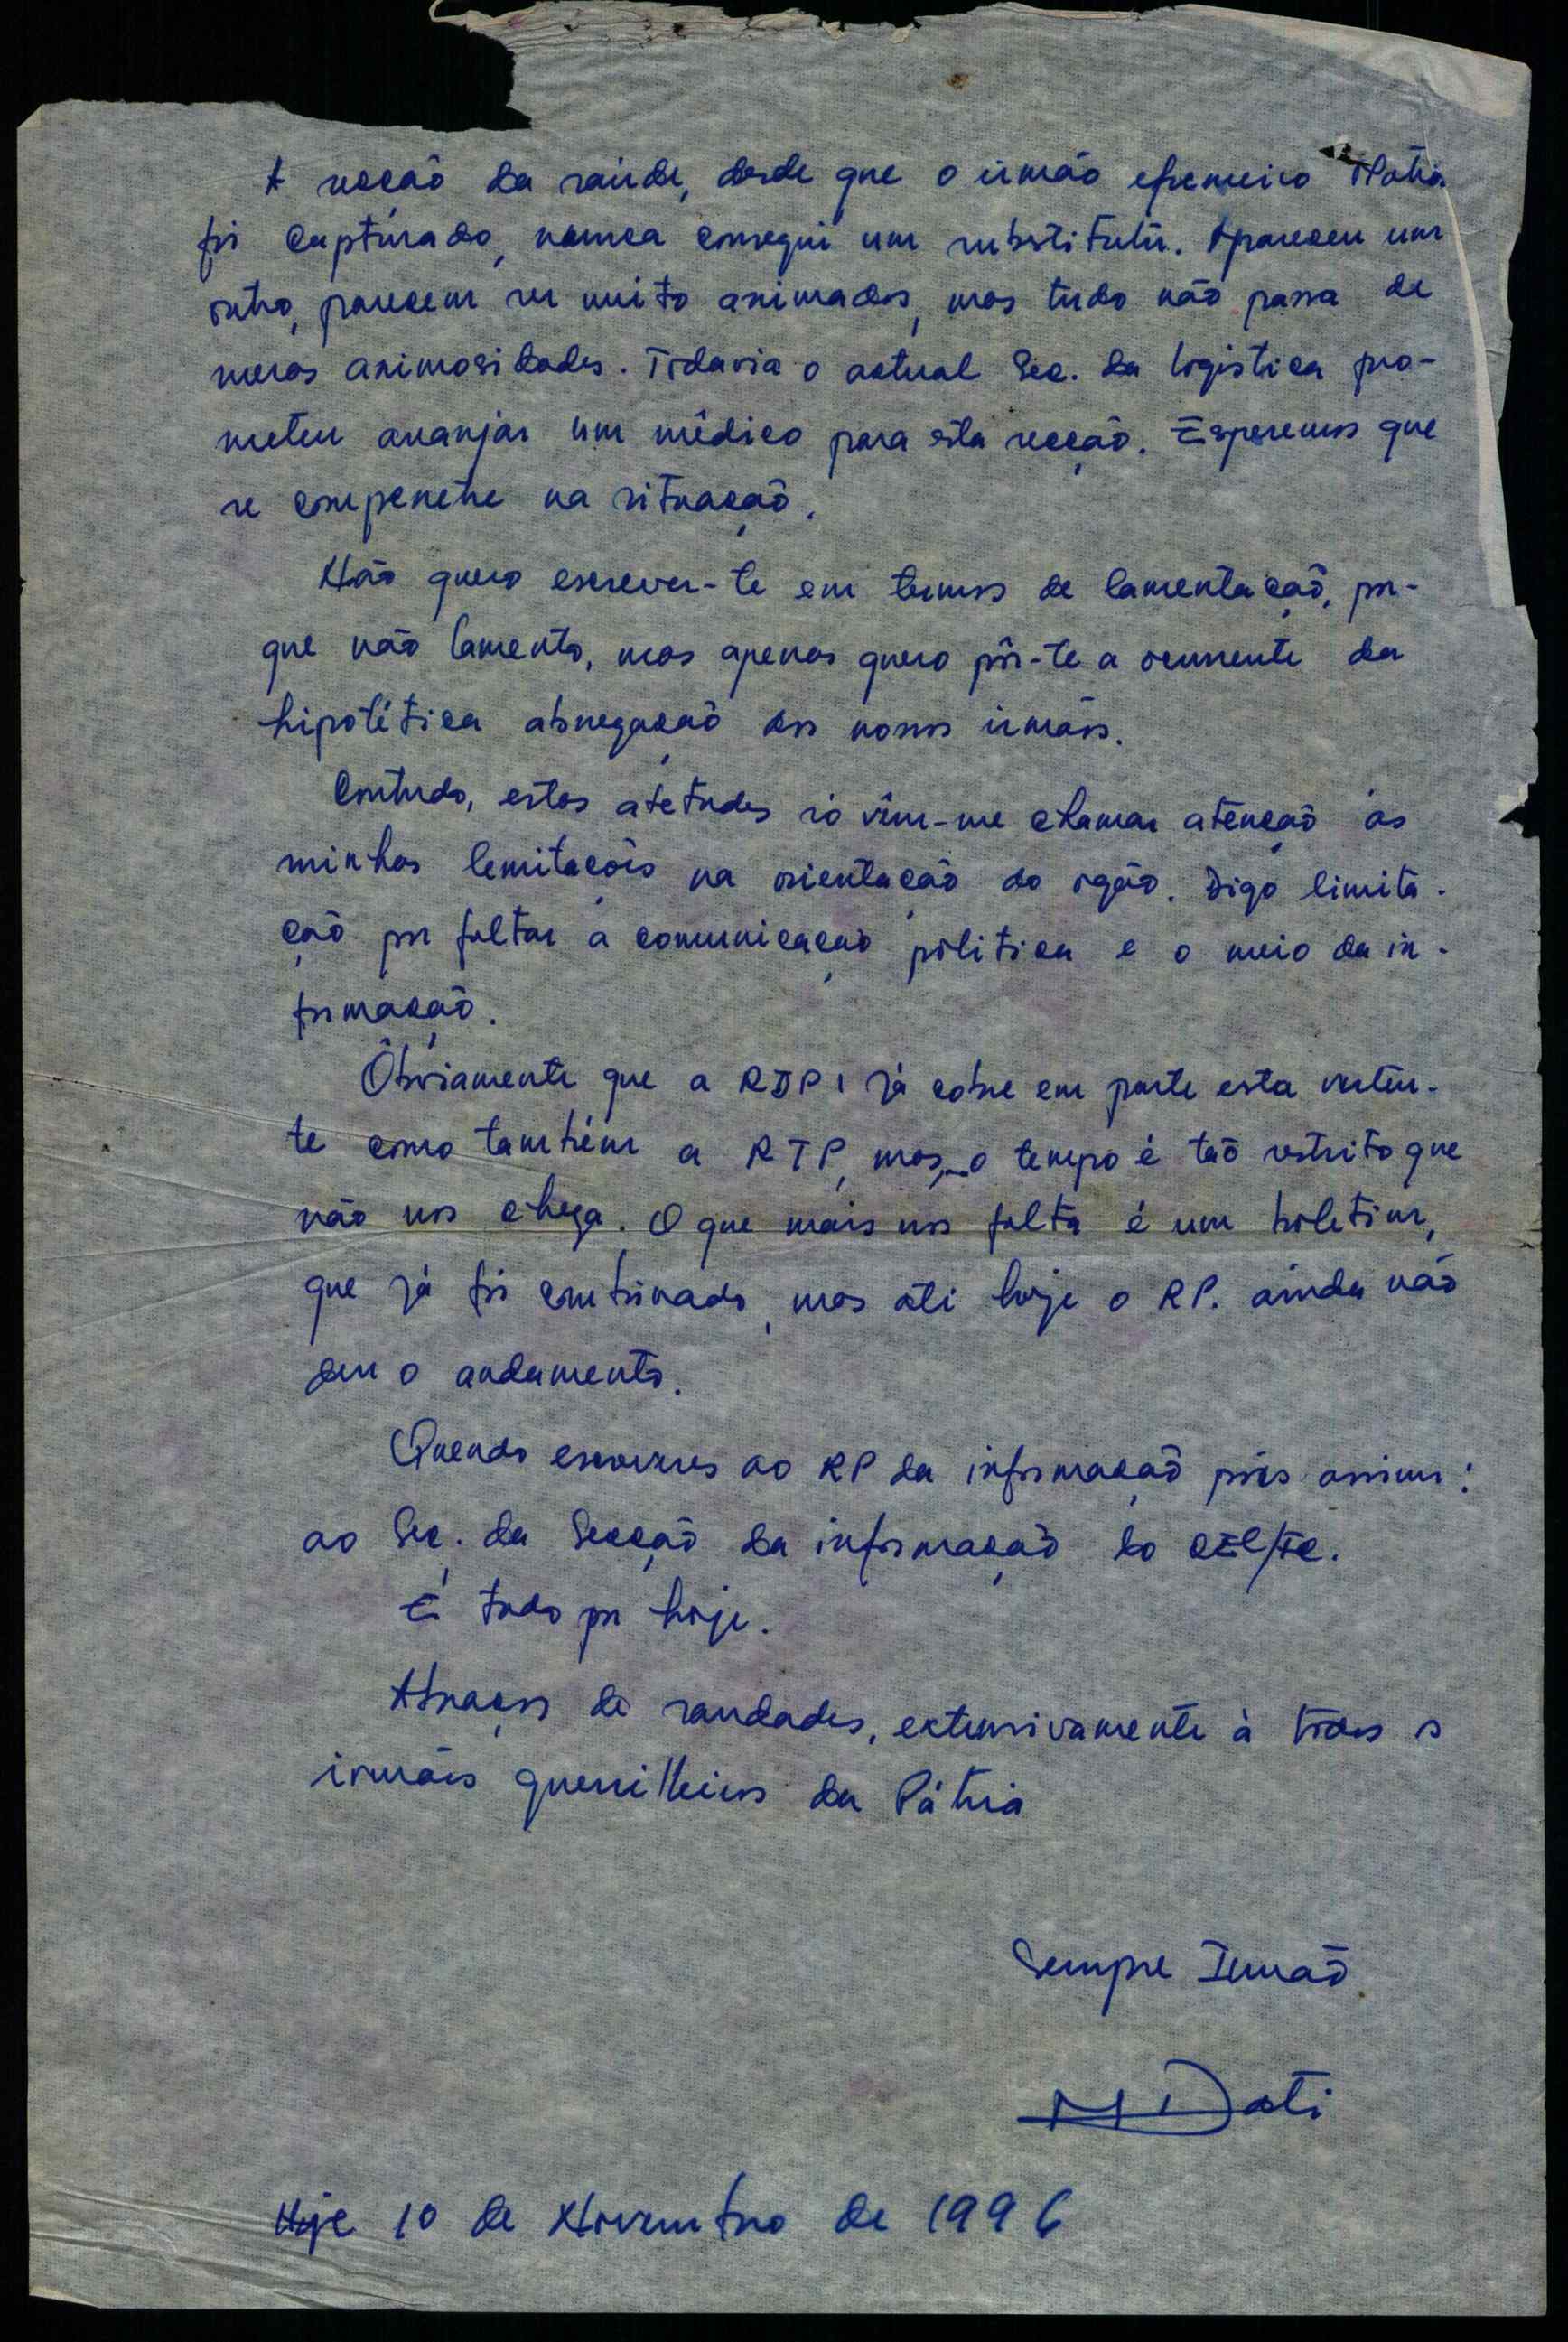 A secção da saúde, desde que o irmão efremeiro
foi capturado, nunca consegui um substituto. Aparecem um
outro, parecem ser muito animados, mas tudo não passa de
meras animosidades. Todavia o actual Sec. da logistica pro-
meteu arranjar um médico para esta secção. Esperemos que
se compenetre na situação.
Não quero escrever-te em termos de lamentação, por-
que não lamento, mas apenas quero pôr-te a ocurrente da
hipotética abnegação dos nossos irmãos.
Contudo, estas atetudes só vêm-me chamar atenção às
minhas lemitações na orientação do orgão. Digo limita-
ção por faltar a comunicação politica e o meio da in-
formação.
Óbviamente que a RDPI já cobre em parte esta verten-
te como também a RTP, mas, o tempo é tão restrito que
não nos chega. O que mais nos falta é um boletim,
que já foi combinado, mas até hoje o RP. ainda não
deu o andamento.
Quando escreveres ao RP da informação pões assim:
ao Sec. da Secção da informação do CEL/FC.
É tudo por hoje.
Abraços de saudades, extensivamente à todos os
irmãos guerrilheiros da Pátria
Sempre Irmão
Dati
Hoje 10 de Novembro de 1996